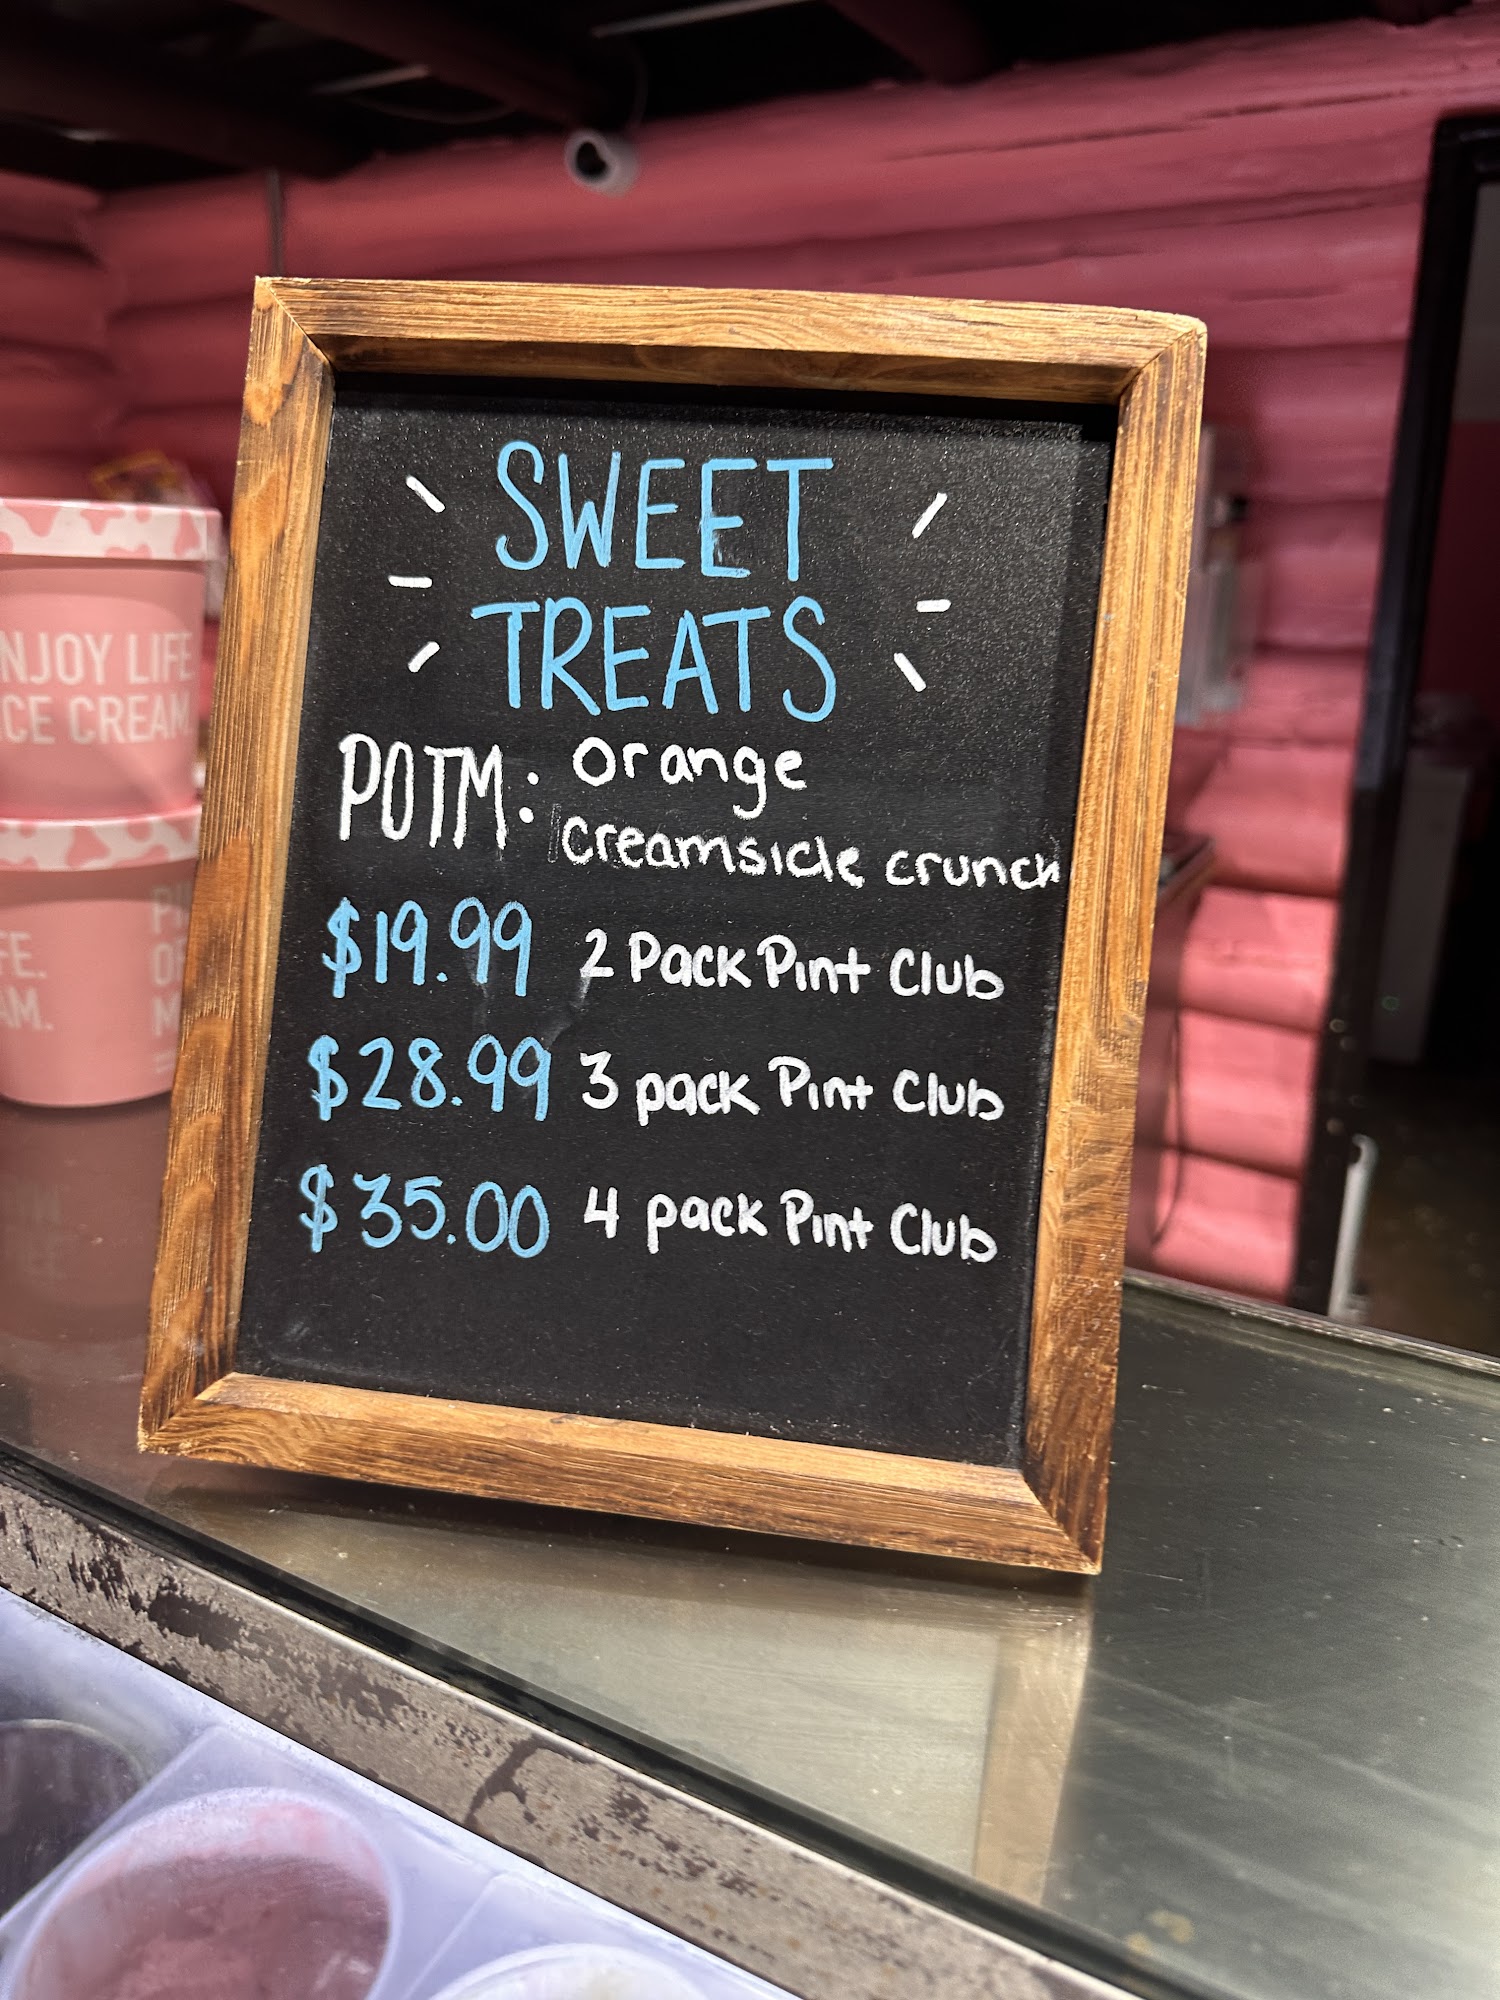 SWEET
TREATS
POTM: orange
creamsicle crunch
$19.99 2 Pack Pint Club
$28.99 3 pack Pint Club
$35.00 4 pack Pint Club
NJOY LIFE
CE CREAM.
FE.
AM.